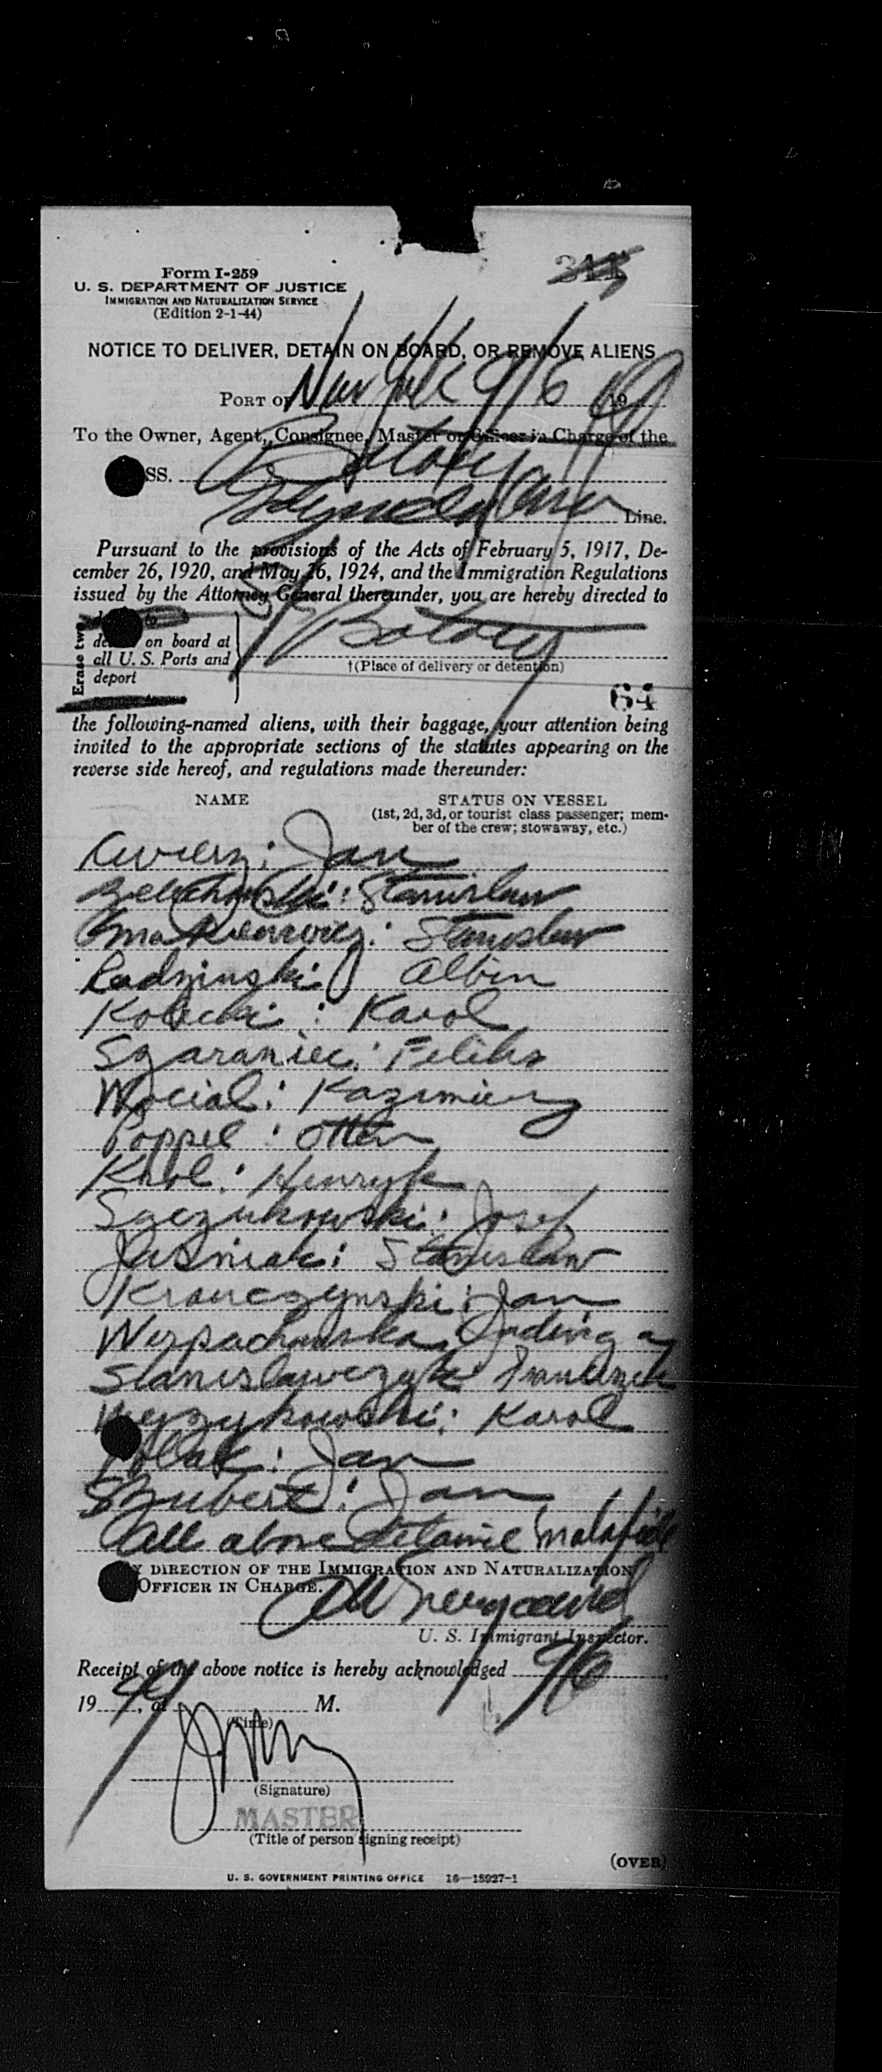 311
Form I-259
U. S. DEPARTMENT OF JUSTICE
IMMIGRATION AND NATURALIZATION SERVICE
(Edition 2-1-44)
NOTICE TO DELIVER, DETAIN ON BOARD, OR REMOVE ALIENS
PORT OF New York 9/6 19
To the Owner, Agent, Consignee, Master or Officer in Charge of the
SS. Batory
Gdynia Line.
Pursuant to the provisions of the Acts of February 5, 1917, De-
cember 26, 1920, and May 26, 1924, and the Immigration Regulations
issued by the Attorney General thereunder, you are hereby directed to
Erase two
on board at
all U. S. Ports and
deport
Batory
†(Place of delivery or detention)
64
the following-named aliens, with their baggage, your attention being
invited to the appropriate sections of the statutes appearing on the
reverse side hereof, and regulations made thereunder:
NAME STATUS ON VESSEL
(1st, 2d, 3d, or tourist class passenger; mem-
ber of the crew; stowaway, etc.)
: Jan
: Stanislaw
: Stanislaw
Radzinski: Albin
: Karol
Szaraniec: Feliks
Wocial: Kazimierz
Poppel: Otton
Krol: Henryk
Szczukowski: Josef
Jasniak: Stanislaw
Krawczynski: Jan
Werpachowska, Jadwiga
Stanislawczyk Franciszek
: Karol
Polak: Jan
Szubert: Jan
All above detaine malafide
BY DIRECTION OF THE IMMIGRATION AND NATURALIZATION
OFFICER IN CHARGE.
U. S. Immigrant Inspector.
Receipt of the above notice is hereby acknowledged 9/6
19 49, at M.
(Time)
(Signature)
MASTER
(Title of person signing receipt)
(OVER)
U. S. GOVERNMENT PRINTING OFFICE 16—18927-1